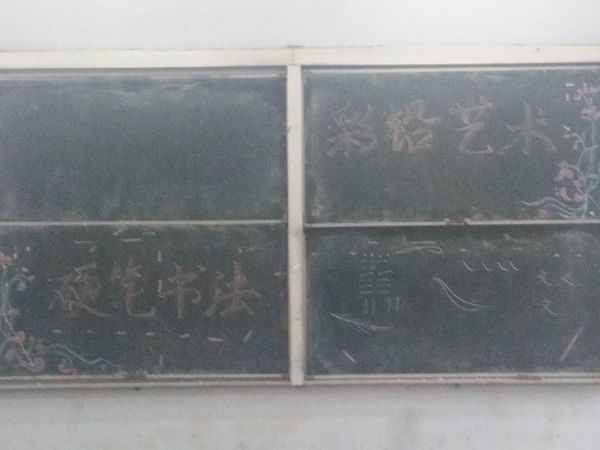 彩铅艺术
硬笔书法